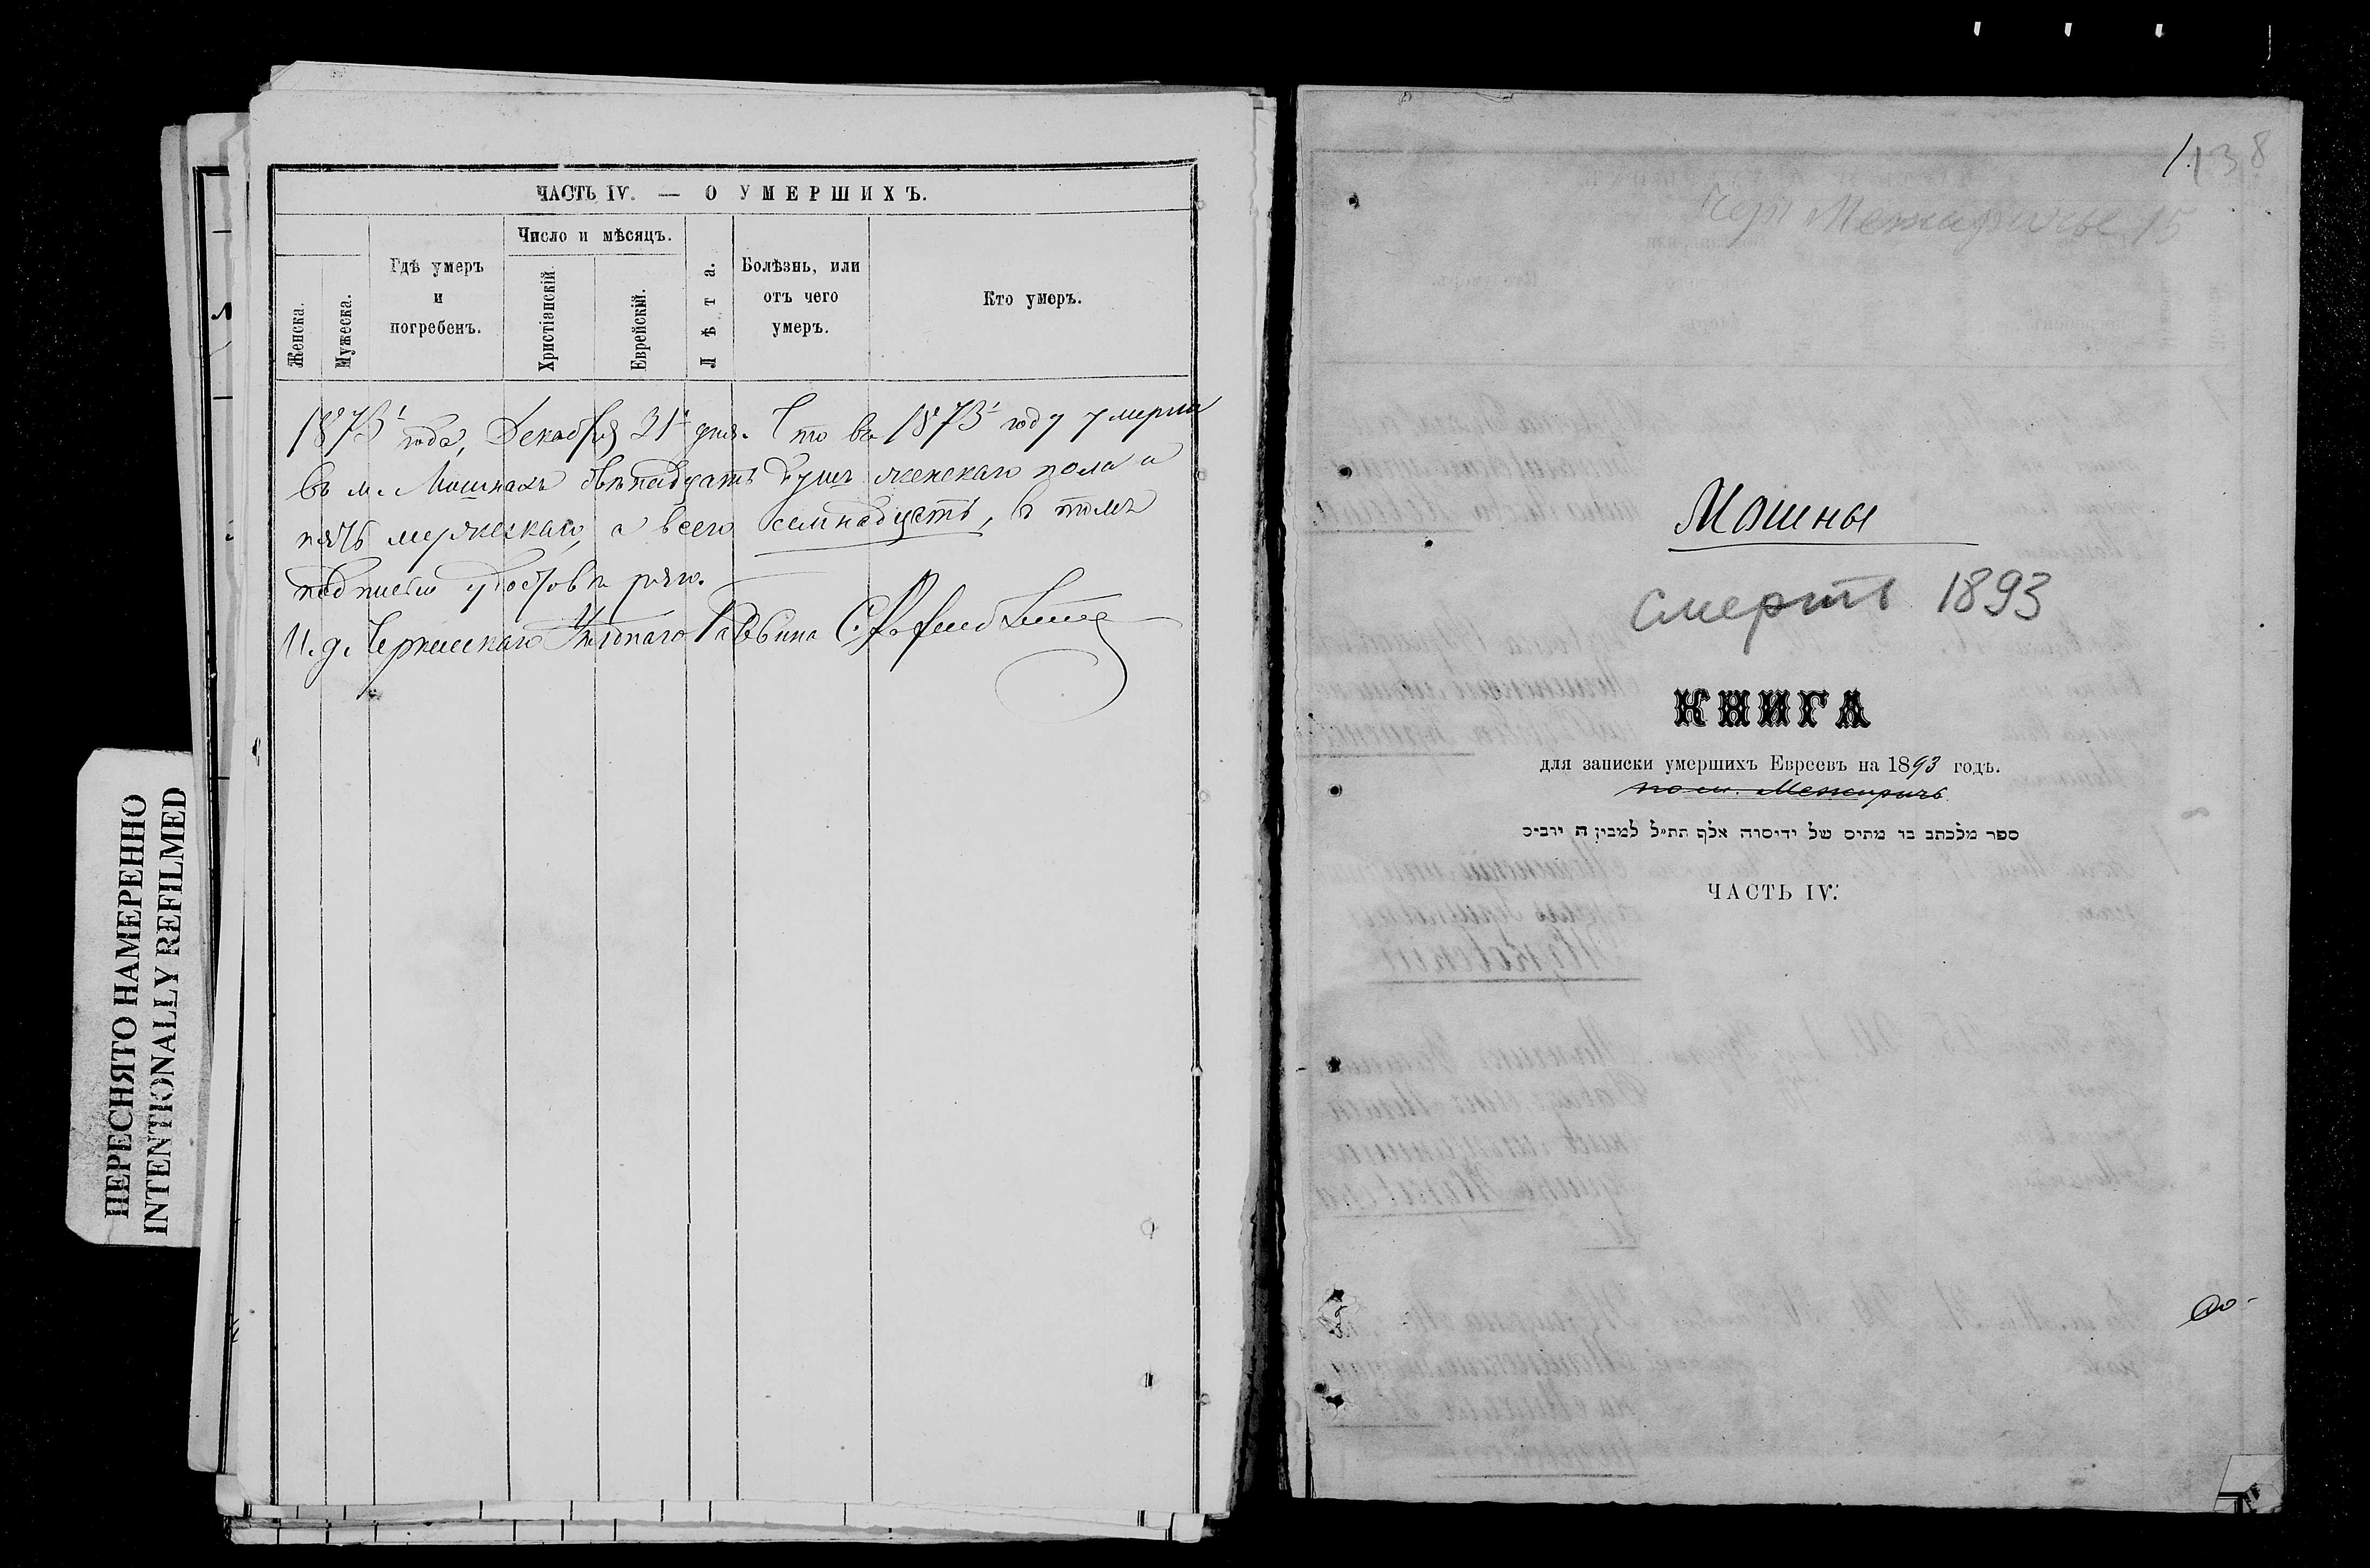 ПЕРЕСНЯТО НАМЕРЕННО
INTENTIONALLY REFILMED
ЧАСТЬ IV. — О УМЕРШИХЪ.
Женска.
Мужеска.
Гдѣ умеръ
и
погребенъ.
Число и мѣсяцъ.
Христіанскій
Еврейскій.
Лѣта.
Болѣзнь, или
отъ чего
умеръ.
Кто умеръ.
1873 года, Декабря 31 дня. Что въ 1873 году умерло
въ м. Мошнахъ двѣнадцать душъ женскаго пола и
пять мужескаго, а всего семнадцать, въ томъ
подписью удостовѣряю.
И. д. Черкасскаго Уѣзднаго Раввина С.
1138
Мошны
смерть 1893
КНИГА
для записки умершихъ Евреевъ на 1893 годъ.
по м. Межиричъ
ספר מלכתב בו מתיס של ידיסוה אלף תת״ל למבין ה יוביס
ЧАСТЬ IV.